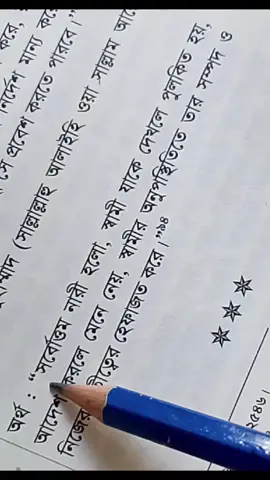 করে,
নির্দেশ মান্য করে
সে প্রবেশ করতে পারবে।"
(সাল্লাল্লাহু আলাইহি ওয়া সাল্লাম
অর্থ : “সর্বোত্তম নারী হলো, স্বামী যাকে দেখলে পুলকিত হয়,
আদেশ করলে মেনে নেয়, স্বামীর অনুপস্থিতিতে তার সম্পদ ও
নিজের হেফাজত করে।”
২৫৪৬।